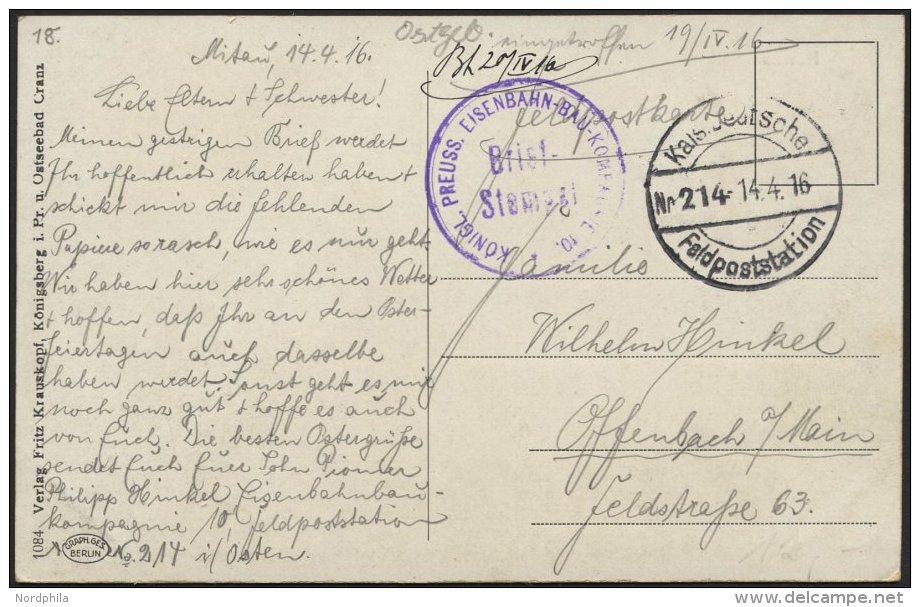 18.
Ostgeb.
eingetroffen 19/IV.16
Bh. 20/IV 16
Mitau, 14.4.16.
Liebe Eltern & Schwester!
Meinen gestrigen Brief werdet
Ihr hoffentlich erhalten haben &
schickt mir die fehlenden
Papiere so rasch, wie es nur geht.
Wir haben hier sehr schönes Wetter
& hoffen, daß Ihr an den Oster-
feiertagen auch dasselbe
haben werdet. Sonst geht es mir
noch ganz gut & hoffe es auch
von Euch. Die besten Ostergrüße
sendet Euch Euer Sohn Pionier
Philipp Hinkel Eisenbahnbau-
kompagnie 10, Feldpoststation
No. 214 i/Osten.
Feldpostkarte
KÖNIGL. PREUSS. EISENBAHN-BAU-KOMPAGNIE 10.
Brief-
Stempel
Kais. Deutsche
Nr. 214 - 14.4.16
Feldpoststation
Familie
Wilhelm Hinkel
Offenbach a/Main
Feldstraße 63.
1084 Verlag Fritz Krauskopf, Königsberg i. Pr. u. Ostseebad Cranz
GRAPH. GES.
BERLIN
Nordphila
delcampe.net